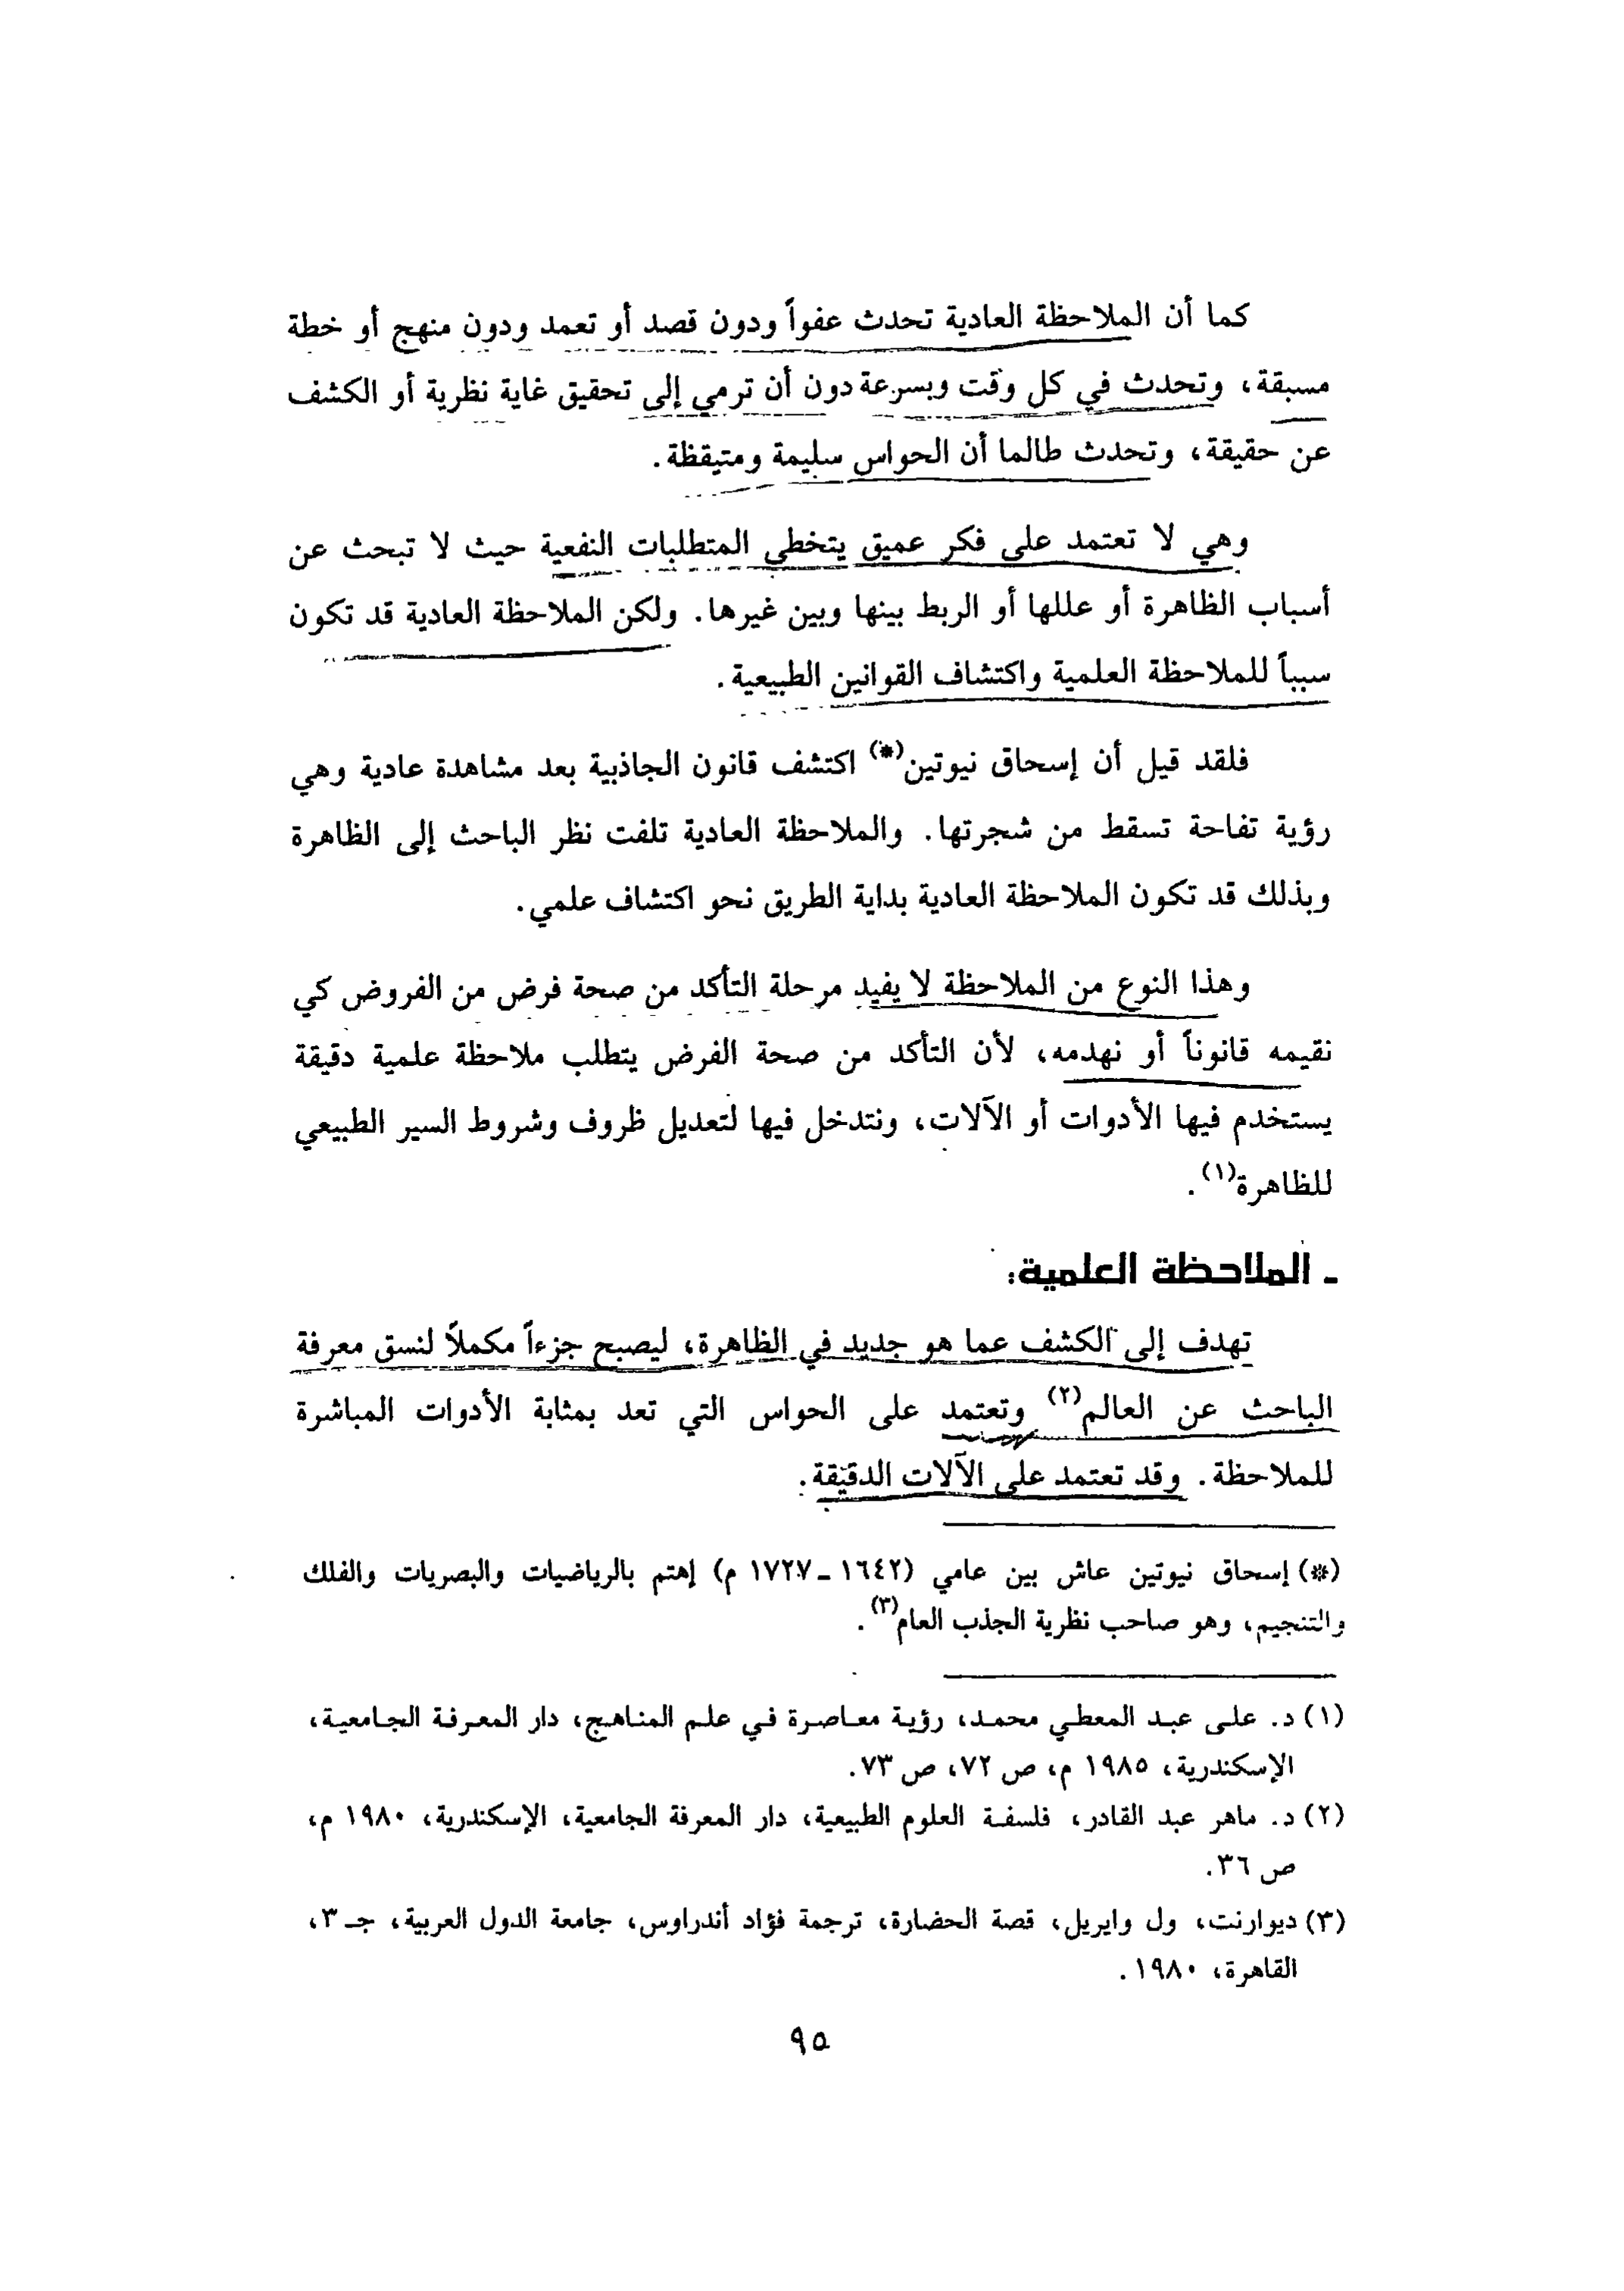 كما أن الملاحظة العادية تحدث عفواً ودون قصد أو تعمد ودون منهج أو خطة
مسبقة، وتحدث في كل وقت وبسرعة دون أن ترمي إلى تحقيق غاية نظرية أو الكشف
عن حقيقة، وتحدث طالما أن الحواس سليمة ومتيقظة.
وهي لا تعتمد على فكر عميق يتخطى المتطلبات النفعية حيث لا تبحث عن
أسباب الظاهرة أو عللها أو الربط بينها وبين غيرها. ولكن الملاحظة العادية قد تكون
سبباً للملاحظة العلمية واكتشاف القوانين الطبيعية.
فلقد قيل أن إسحاق نيوتين(*) اكتشف قانون الجاذبية بعد مشاهدة عادية وهي
رؤية تفاحة تسقط من شجرتها. والملاحظة العادية تلفت نظر الباحث إلى الظاهرة
وبذلك قد تكون الملاحظة العادية بداية الطريق نحو اكتشاف علمي.
وهذا النوع من الملاحظة لا يفيد مرحلة التأكد من صحة فرض من الفروض كي
نقيمه قانوناً أو نهدمه، لأن التأكد من صحة الفرض يتطلب ملاحظة علمية دقيقة
يستخدم فيها الأدوات أو الآلات، ونتدخل فيها لتعديل ظروف وشروط السير الطبيعي
للظاهرة(١).
ـ الملاحظة العلمية:
تهدف إلى الكشف عما هو جديد في الظاهرة، ليصبح جزءاً مكملاً لنسق معرفة
الباحث عن العالم(٢) وتعتمد على الحواس التي تعد بمثابة الأدوات المباشرة
للملاحظة. وقد تعتمد على الآلات الدقيقة.
(*) إسحاق نيوتين عاش بين عامي (١٦٤٢ ـ ١٧٢٧ م) إهتم بالرياضيات والبصريات والفلك
والتنجيم، وهو صاحب نظرية الجذب العام(٣).
(١) د. على عبد المعطي محمد، رؤية معاصرة في علم المناهج، دار المعرفة الجامعية،
الإسكندرية، ١٩٨٥ م، ص ٧٢، ص ٧٣.
(٢) د. ماهر عبد القادر، فلسفة العلوم الطبيعية، دار المعرفة الجامعية، الإسكندرية، ١٩٨٠ م،
ص ٣٦.
(٣) ديوارنت، ول وايريل، قصة الحضارة، ترجمة فؤاد أندراوس، جامعة الدول العربية، جـ ٣،
القاهرة، ١٩٨٠.
٩٥